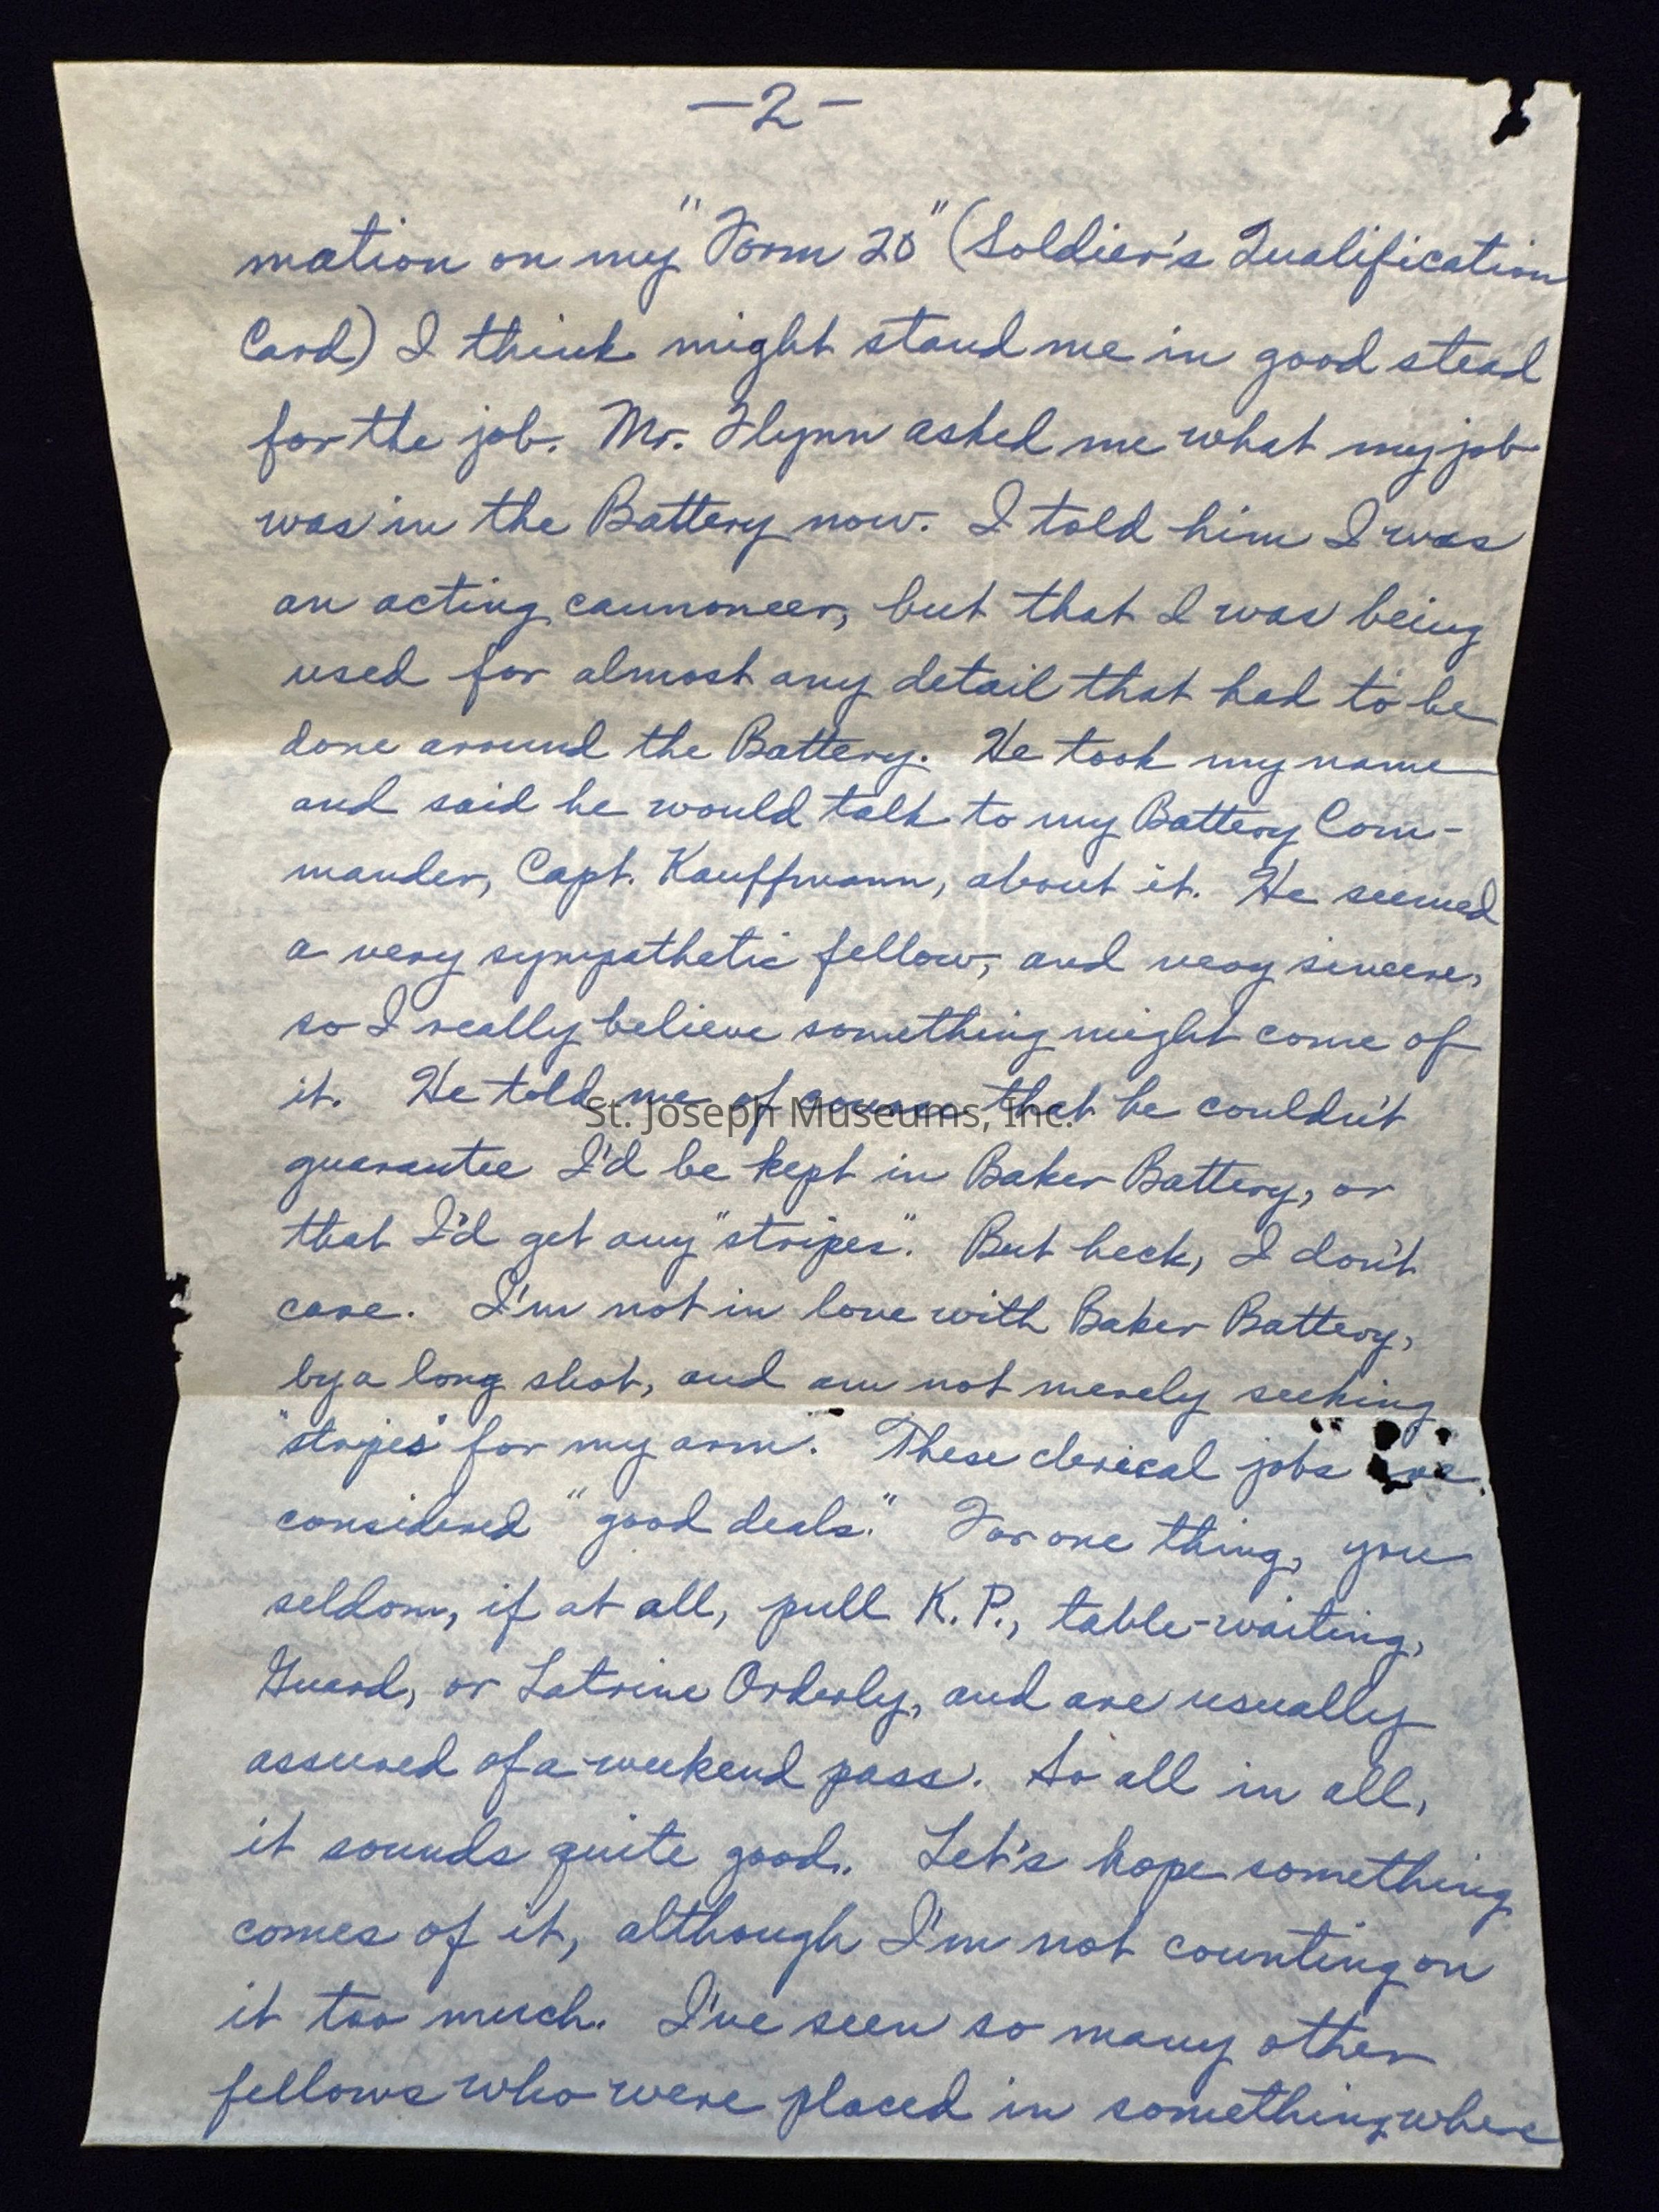 -2-
mation on my "Form 20" (Soldier's Qualification
Card) I think might stand me in good stead
for the job. Mr. Flynn asked me what my job
was in the Battery now. I told him I was
an acting cannoneer, but that I was being
used for almost any detail that had to be
done around the Battery. He took my name
and said he would talk to my Battery Com-
mander, Capt. Kauffmann, about it. He seemed
a very sympathetic fellow, and very sincere,
so I really believe something might come of
it. He told me of course that he couldn't
St. Joseph Museums, Inc.
guarantee I'd be kept in Baker Battery, or
that I'd get any "stripes". But heck, I don't
care. I'm not in love with Baker Battery,
by a long shot, and am not merely seeking
"stripes" for my arm. These clerical jobs are
considered "good deals." For one thing, you
seldom, if at all, pull K.P., table-waiting,
Guard, or Latrine Orderly, and are usually
assured of a weekend pass. So all in all,
it sounds quite good. Let's hope something
comes of it, although I'm not counting on
it too much. I've seen so many other
fellows who were placed in something where